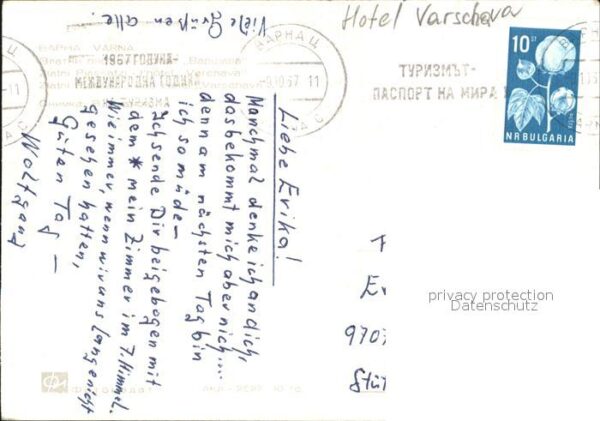 Hotel Varschava
Viele Grüßen alle.
ВАРНА VARNA
ВАРНА Ц
1967 ГОДИНА-
МЕЖДУНАРОДНА ГОДИНА
-9.10.67 11
ТУРИЗМЪТ-
ПАСПОРТ НА МИРА
10 СТ
NR BULGARIA
Liebe Erika!
Manchmal denke ich an dich,
das bekommt mich aber nich...
denn am nächsten Tag bin
ich so müde —
Ich sende Dir beigebogen mit
dem * mein Zimmer im 7. Himmel.
Wie immer, wenn wir uns lange nicht
gesehen hatten,
Guten Tag —
Wolfgang
privacy protection
Datenschutz
9703